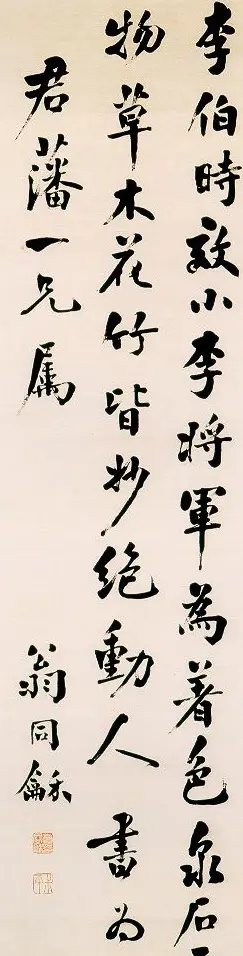 李伯時效小李將軍為着色泉石
物草木花竹皆妙絶動人 書为
君藩一兄属
翁同龢